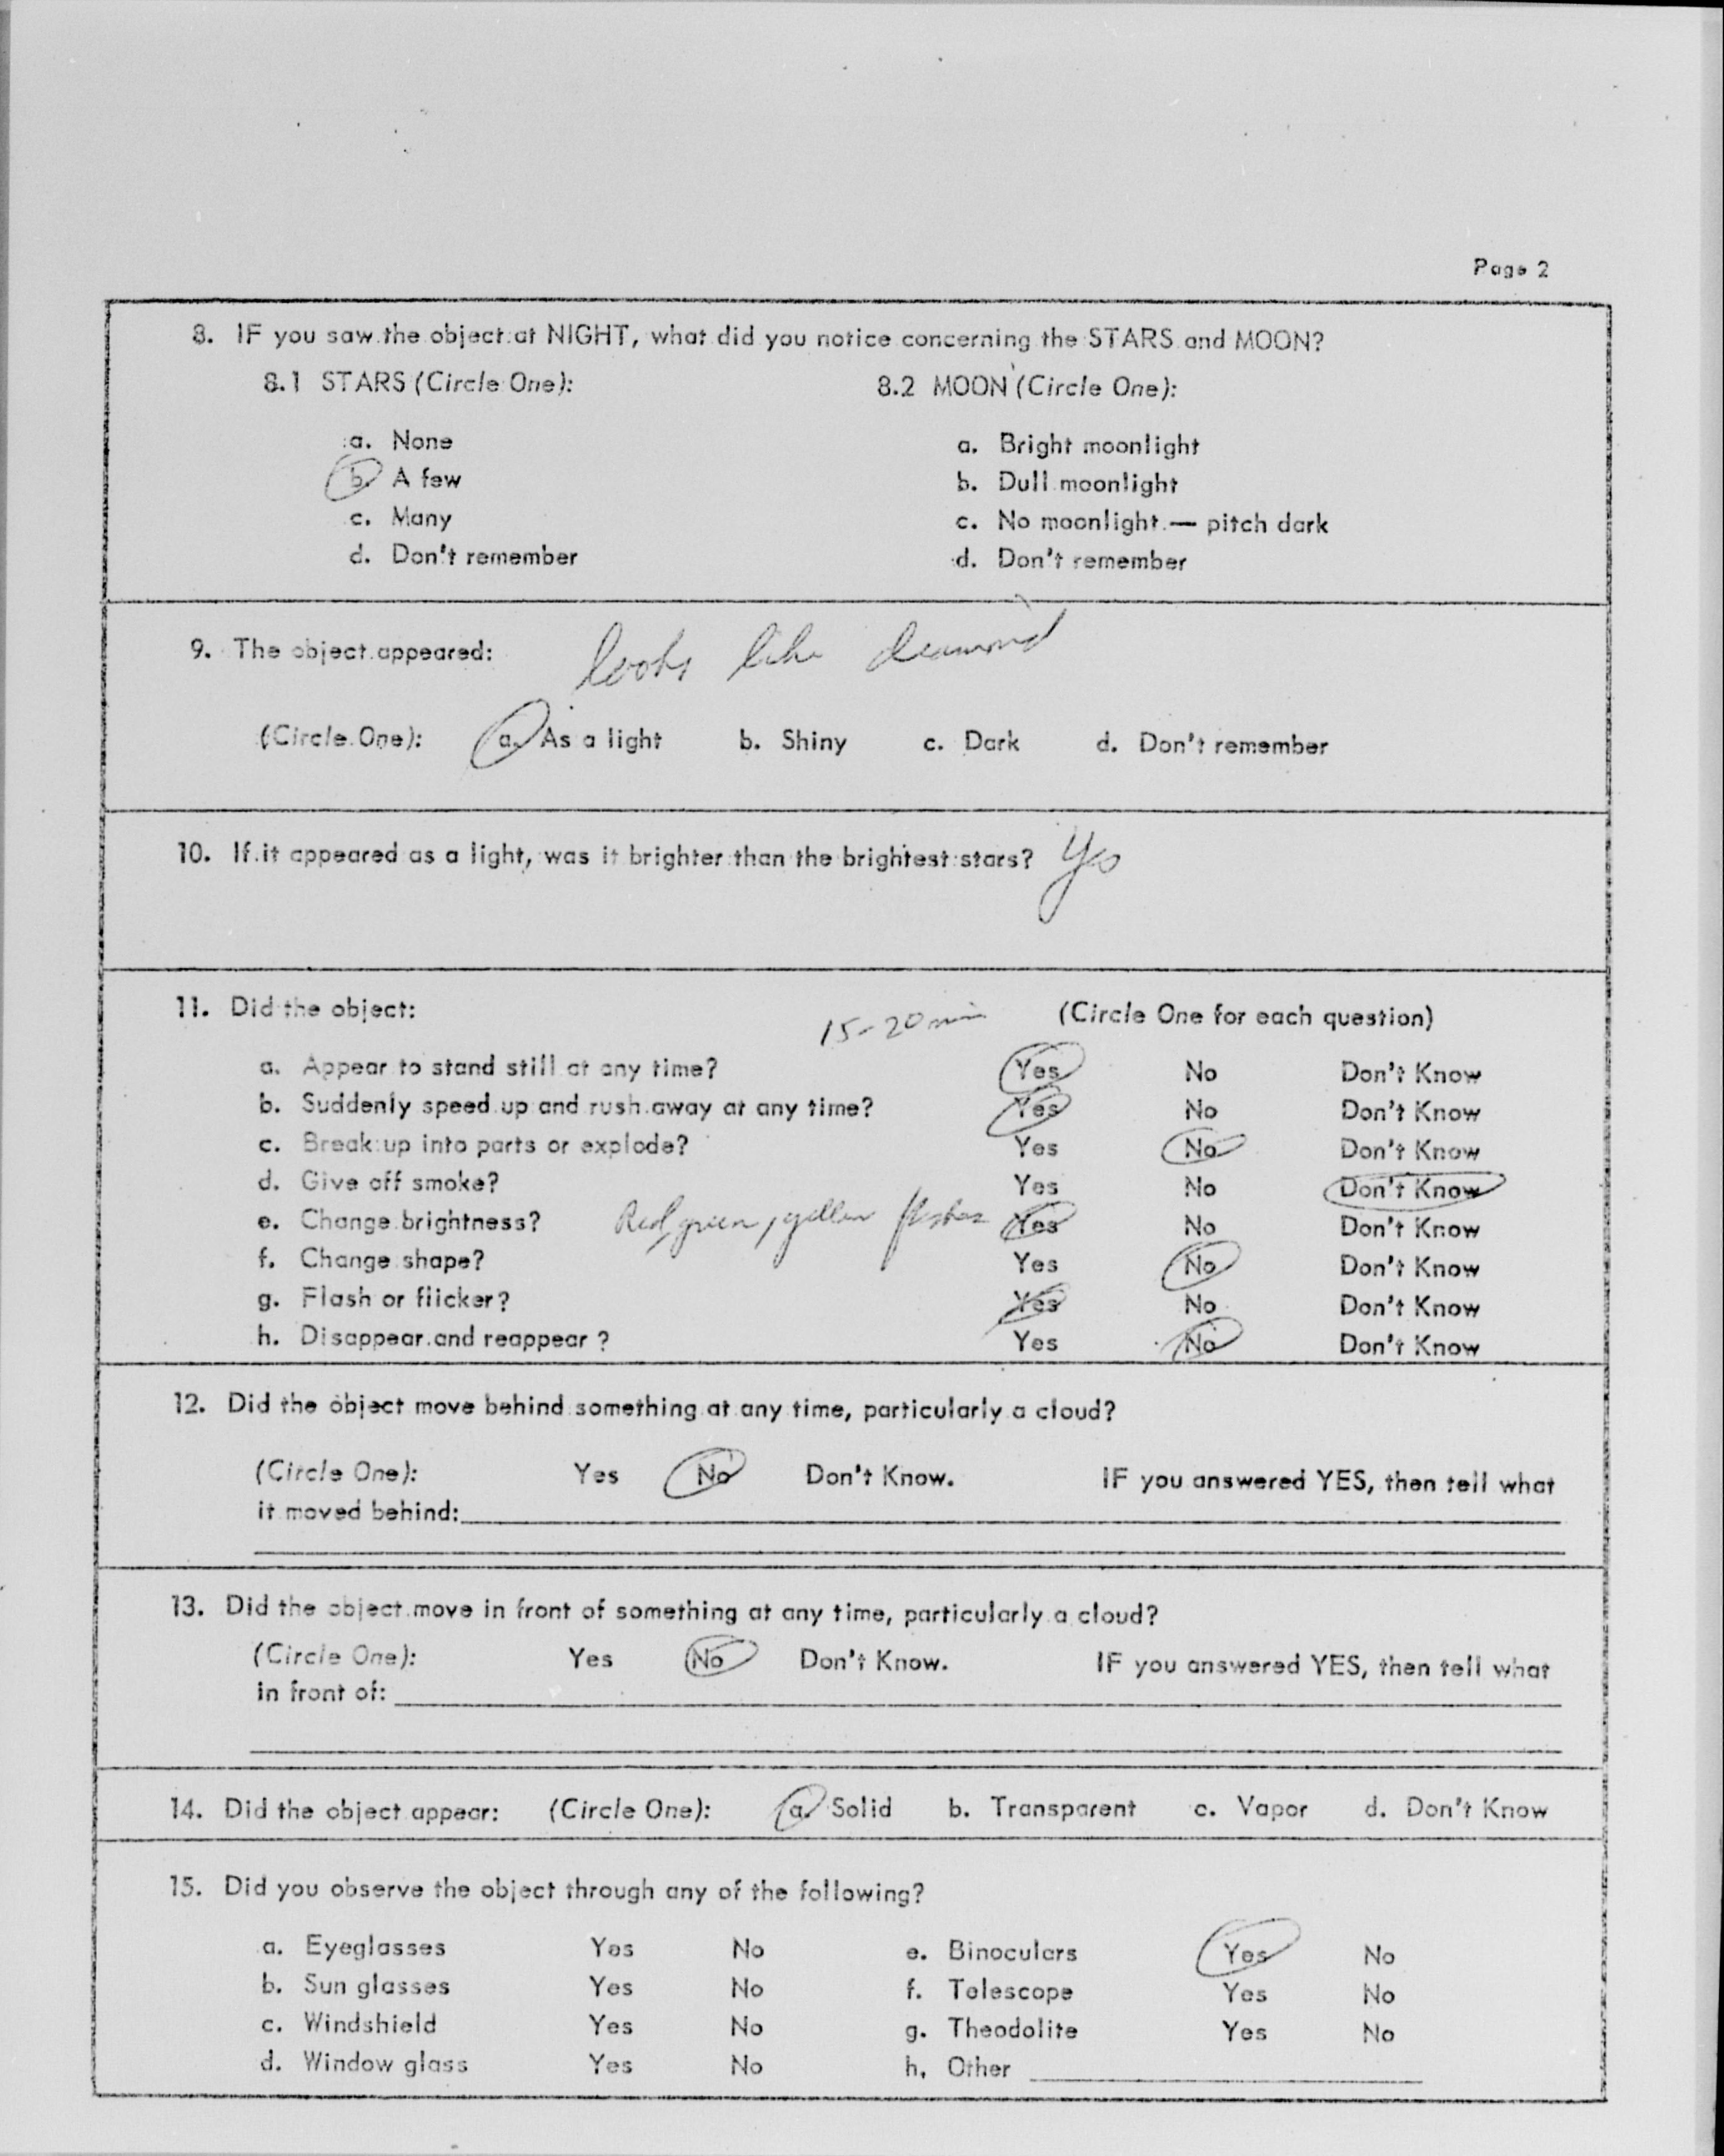 Page 2
8. IF you saw the object at NIGHT, what did you notice concerning the STARS and MOON?
8.1 STARS (Circle One): 8.2 MOON (Circle One):
a. None a. Bright moonlight
b. A few b. Dull moonlight
c. Many c. No moonlight — pitch dark
d. Don't remember d. Don't remember
9. The object appeared: looks like diamond
(Circle One): a. As a light b. Shiny c. Dark d. Don't remember
10. If it appeared as a light, was it brighter than the brightest stars? Yes
11. Did the object: 15-20 min (Circle One for each question)
a. Appear to stand still at any time? Yes No Don't Know
b. Suddenly speed up and rush away at any time? Yes No Don't Know
c. Break up into parts or explode? Yes No Don't Know
d. Give off smoke? Yes No Don't Know
e. Change brightness? Red, green, yellow flashes Yes No Don't Know
f. Change shape? Yes No Don't Know
g. Flash or flicker? Yes No Don't Know
h. Disappear and reappear? Yes No Don't Know
12. Did the object move behind something at any time, particularly a cloud?
(Circle One): Yes No Don't Know. IF you answered YES, then tell what
it moved behind:
13. Did the object move in front of something at any time, particularly a cloud?
(Circle One): Yes No Don't Know. IF you answered YES, then tell what
in front of:
14. Did the object appear: (Circle One): a. Solid b. Transparent c. Vapor d. Don't Know
15. Did you observe the object through any of the following?
a. Eyeglasses Yes No e. Binoculars Yes No
b. Sun glasses Yes No f. Telescope Yes No
c. Windshield Yes No g. Theodolite Yes No
d. Window glass Yes No h. Other